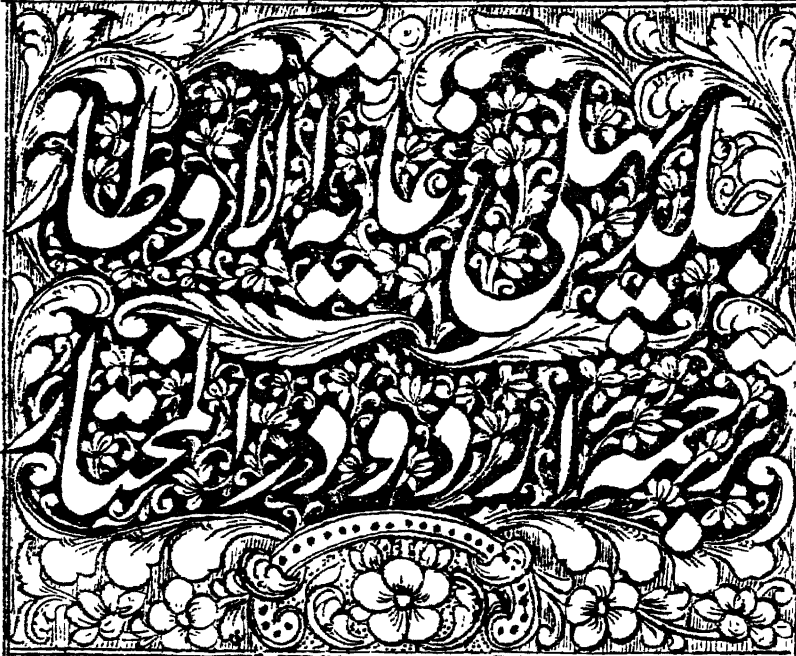 جلد پہلی غایۃ الاوطار
ترجمہ اردو در المختار